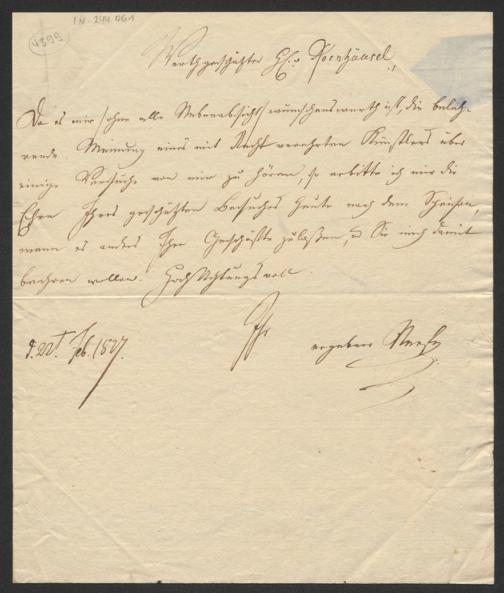 I.N. 244.061
4399
Werthgeschätzter H. v. Kornhäusel,
Da es mir /ohne alle Nebenabsicht/ wünschenswerth ist, die beleh-
rende Meinung eines mit Recht verehrten Künstlers über
einige Versuche von mir zu hören, so erbitte ich mir die
Ehre Ihres geschätzten Besuches heute nach dem Speisen,
wenn es anders Ihre Geschäfte zulaßen, u Sie mich damit
beehren wollen. Hochachtungsvoll
Ihr
ergebener
d. 22t. Feb. 1827.